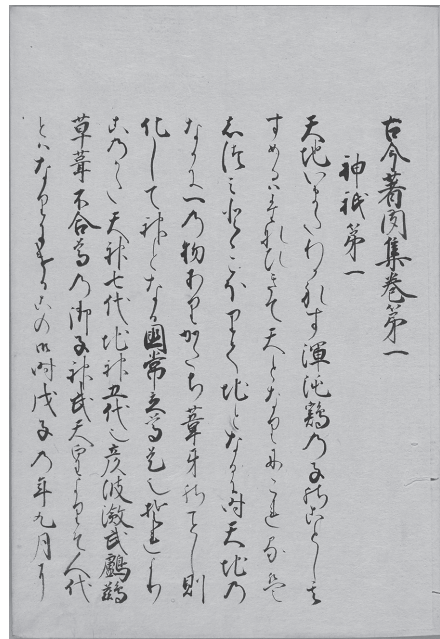 古今著聞集巻第一
神祇第一
天地いまたわかれす渾沌鶏の子のことし其
すめるはたなひきて天となりにこれる
しつみとゝこほりて地となる時天地の
なかに一の物ありかたち葦牙のことし則
化して神となる國常立尊是也それより
このかた天神七代地神五代也彦波瀲武鸕鷀
草葺不合尊の御子神武天皇よりそ人代
とはなりにけるこの御時戊子の年九月に